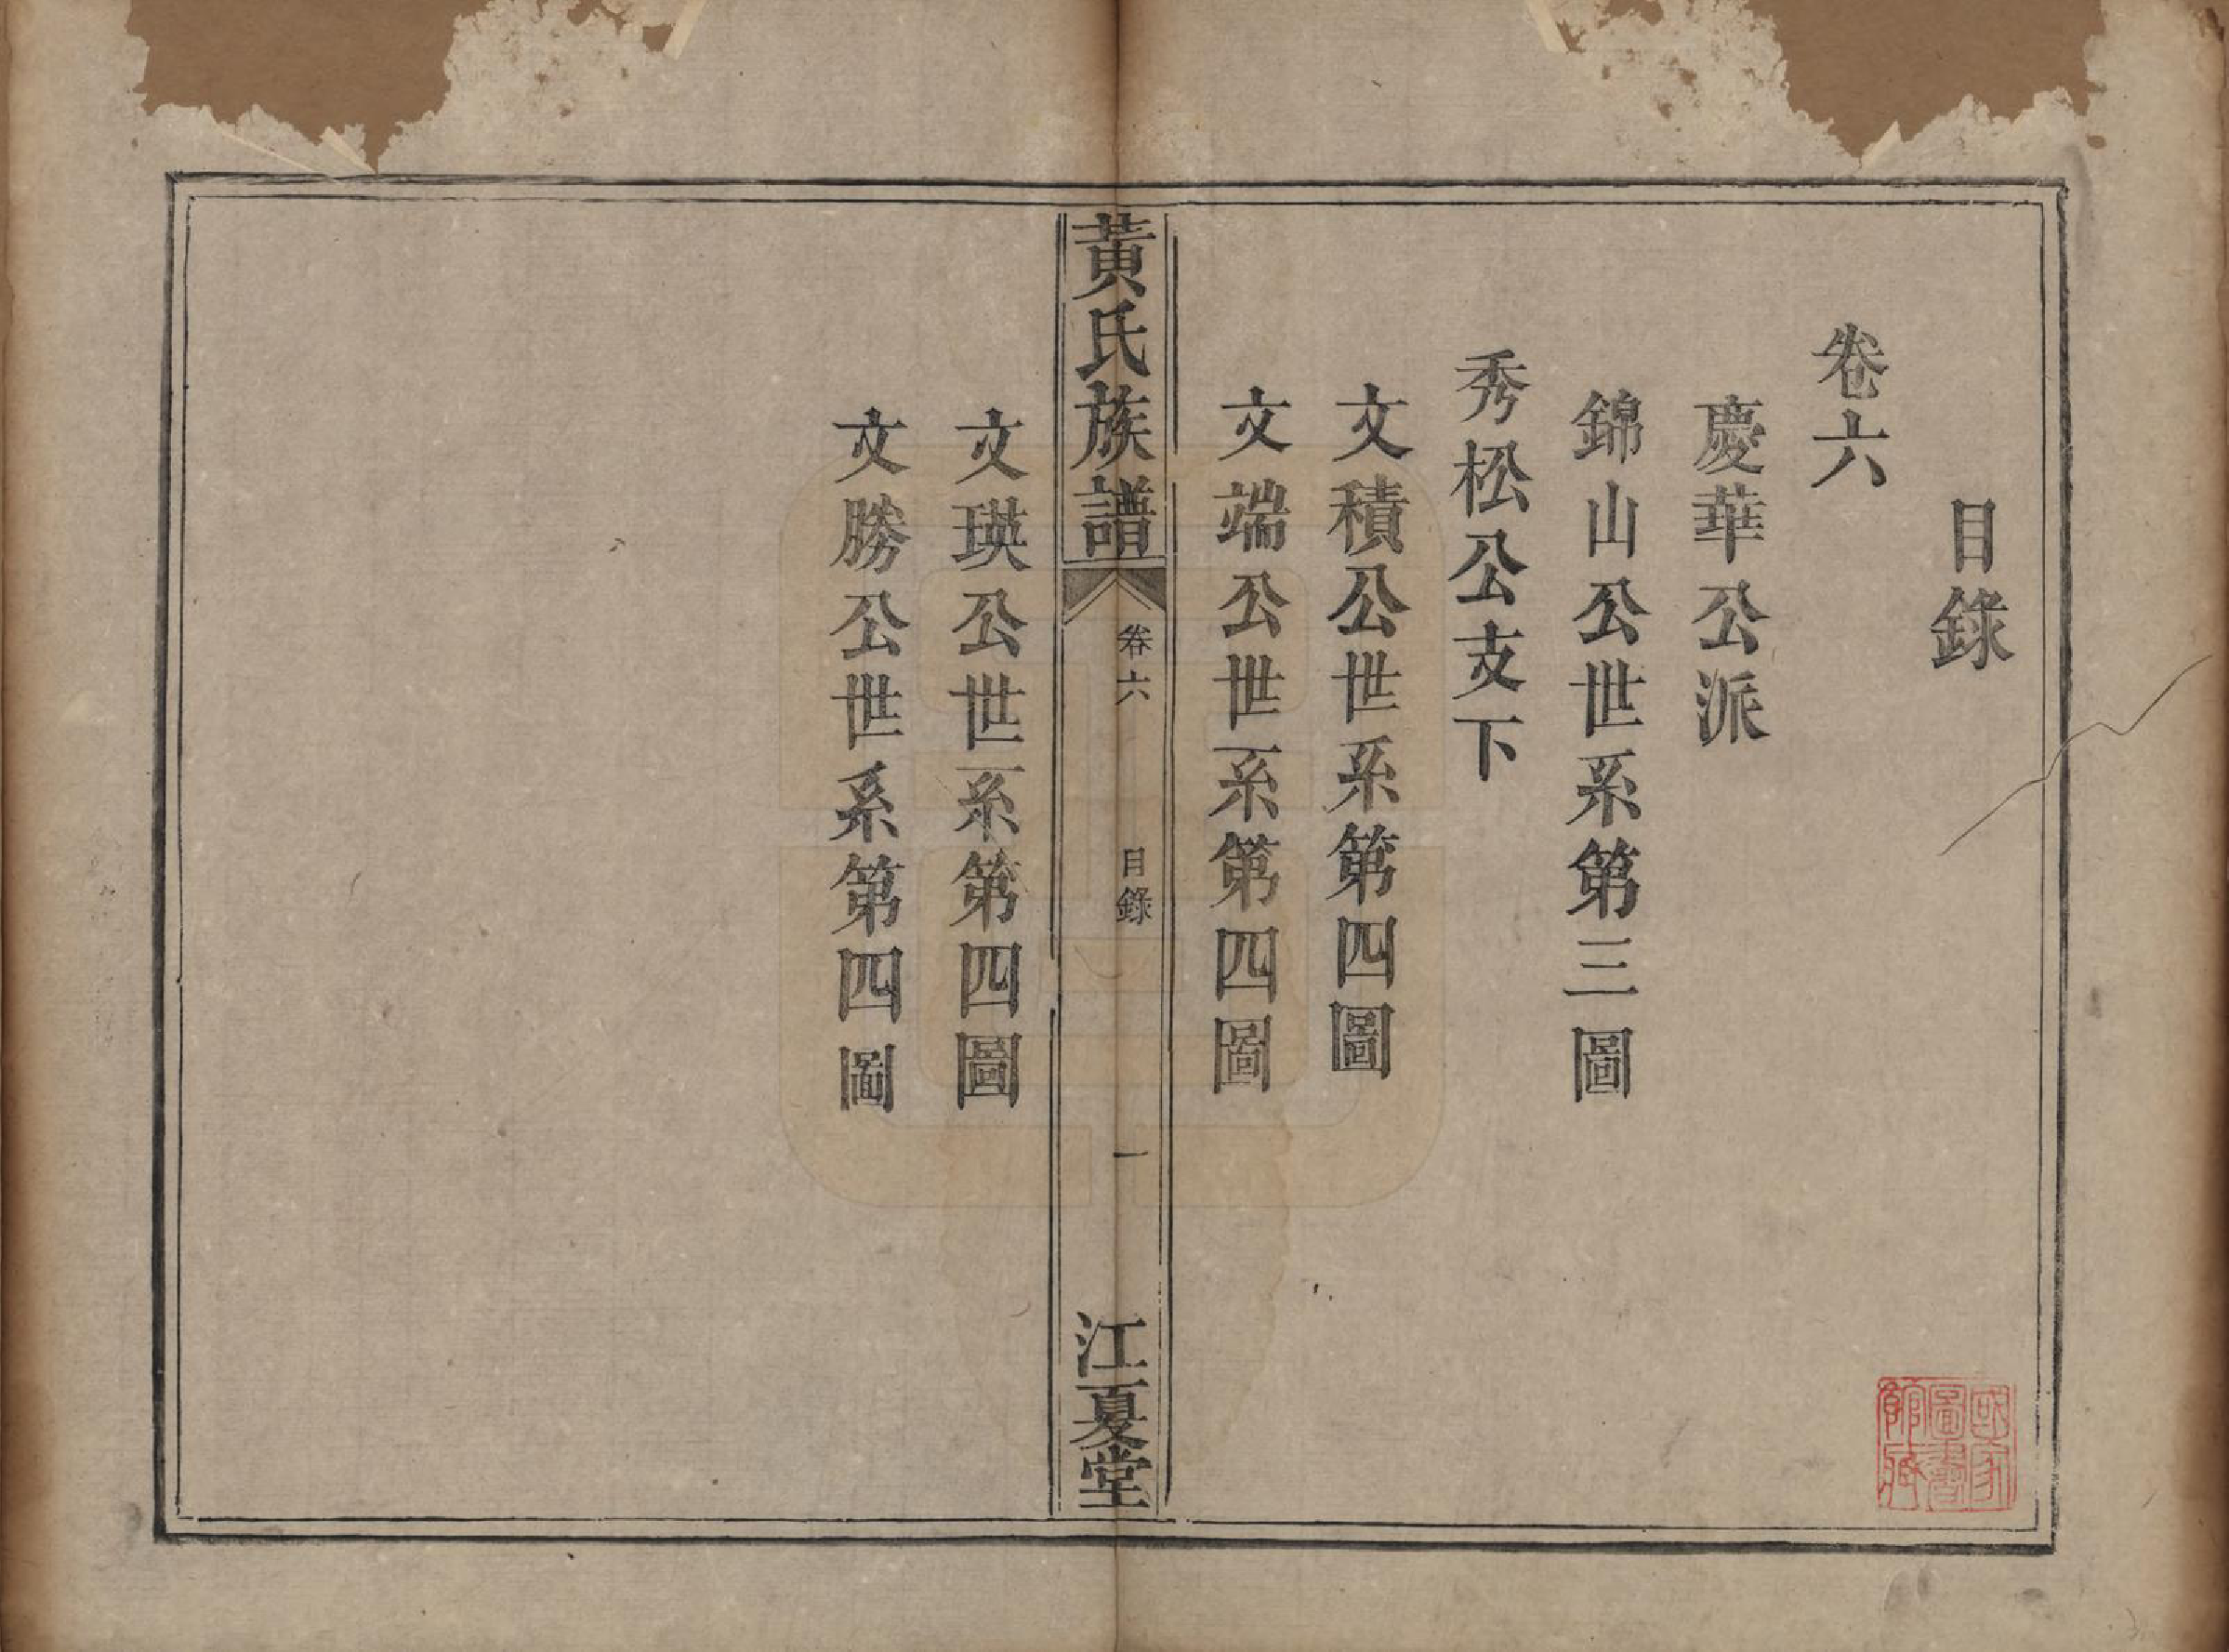 目錄
卷六
慶華公派
錦山公世系第三圖
秀松公支下
文積公世系第四圖
文端公世系第四圖
黃氏族譜
卷六
目錄
一
江夏堂
文瑛公世系第四圖
文勝公世系第四圖
國家
圖書
館藏